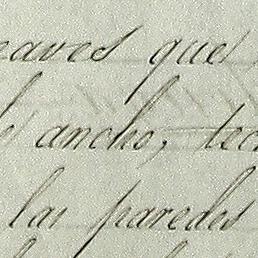 eaves que
ancho, tec
las paredes